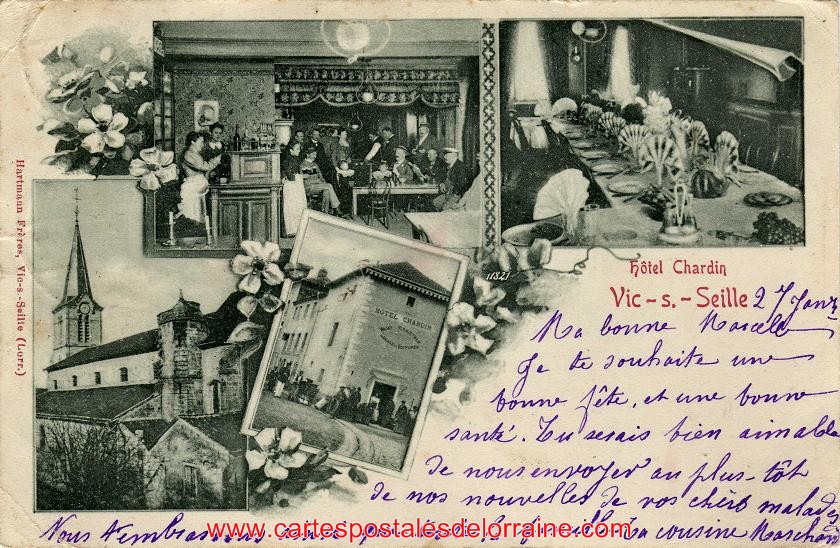 Hôtel Chardin
Vic-s.-Seille 27 Janv
Ma bonne Marcele
Je te souhaite une
bonne fête, et une bonne
santé. Tu serais bien aimable
de nous envoyer au plus-tôt
de nos nouvelles de vos chers malades
Nous t'embrassons ainsi que toute la famille Ta cousine
www.cartespostalesdelorraine.com
Hartmann Frères, Vic-s.-Seille (Lorr.)
11821
HÔTEL CHARDIN